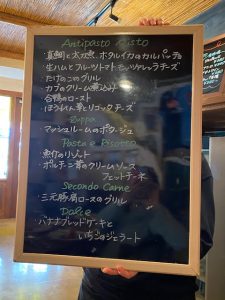 Antipasto Misto
・真鯛と太刀魚、ホタルイカのカルパッチョ
・生ハムとフルーツトマト モッツァレラチーズ
・たけのこのグリル
・カブのクリーム煮込み
・合鴨のロースト
・ほうれん草とリコッタチーズ
Zuppa
・マッシュルームのポタージュ
Pasta e Risotto
・魚介のリゾット
・ポルチーニ茸のクリームソース
フェットチーネ
Secondo Carne
・三元豚肩ロースのグリル
Dolce
・バナナブレッドケーキと
いちごのジェラート